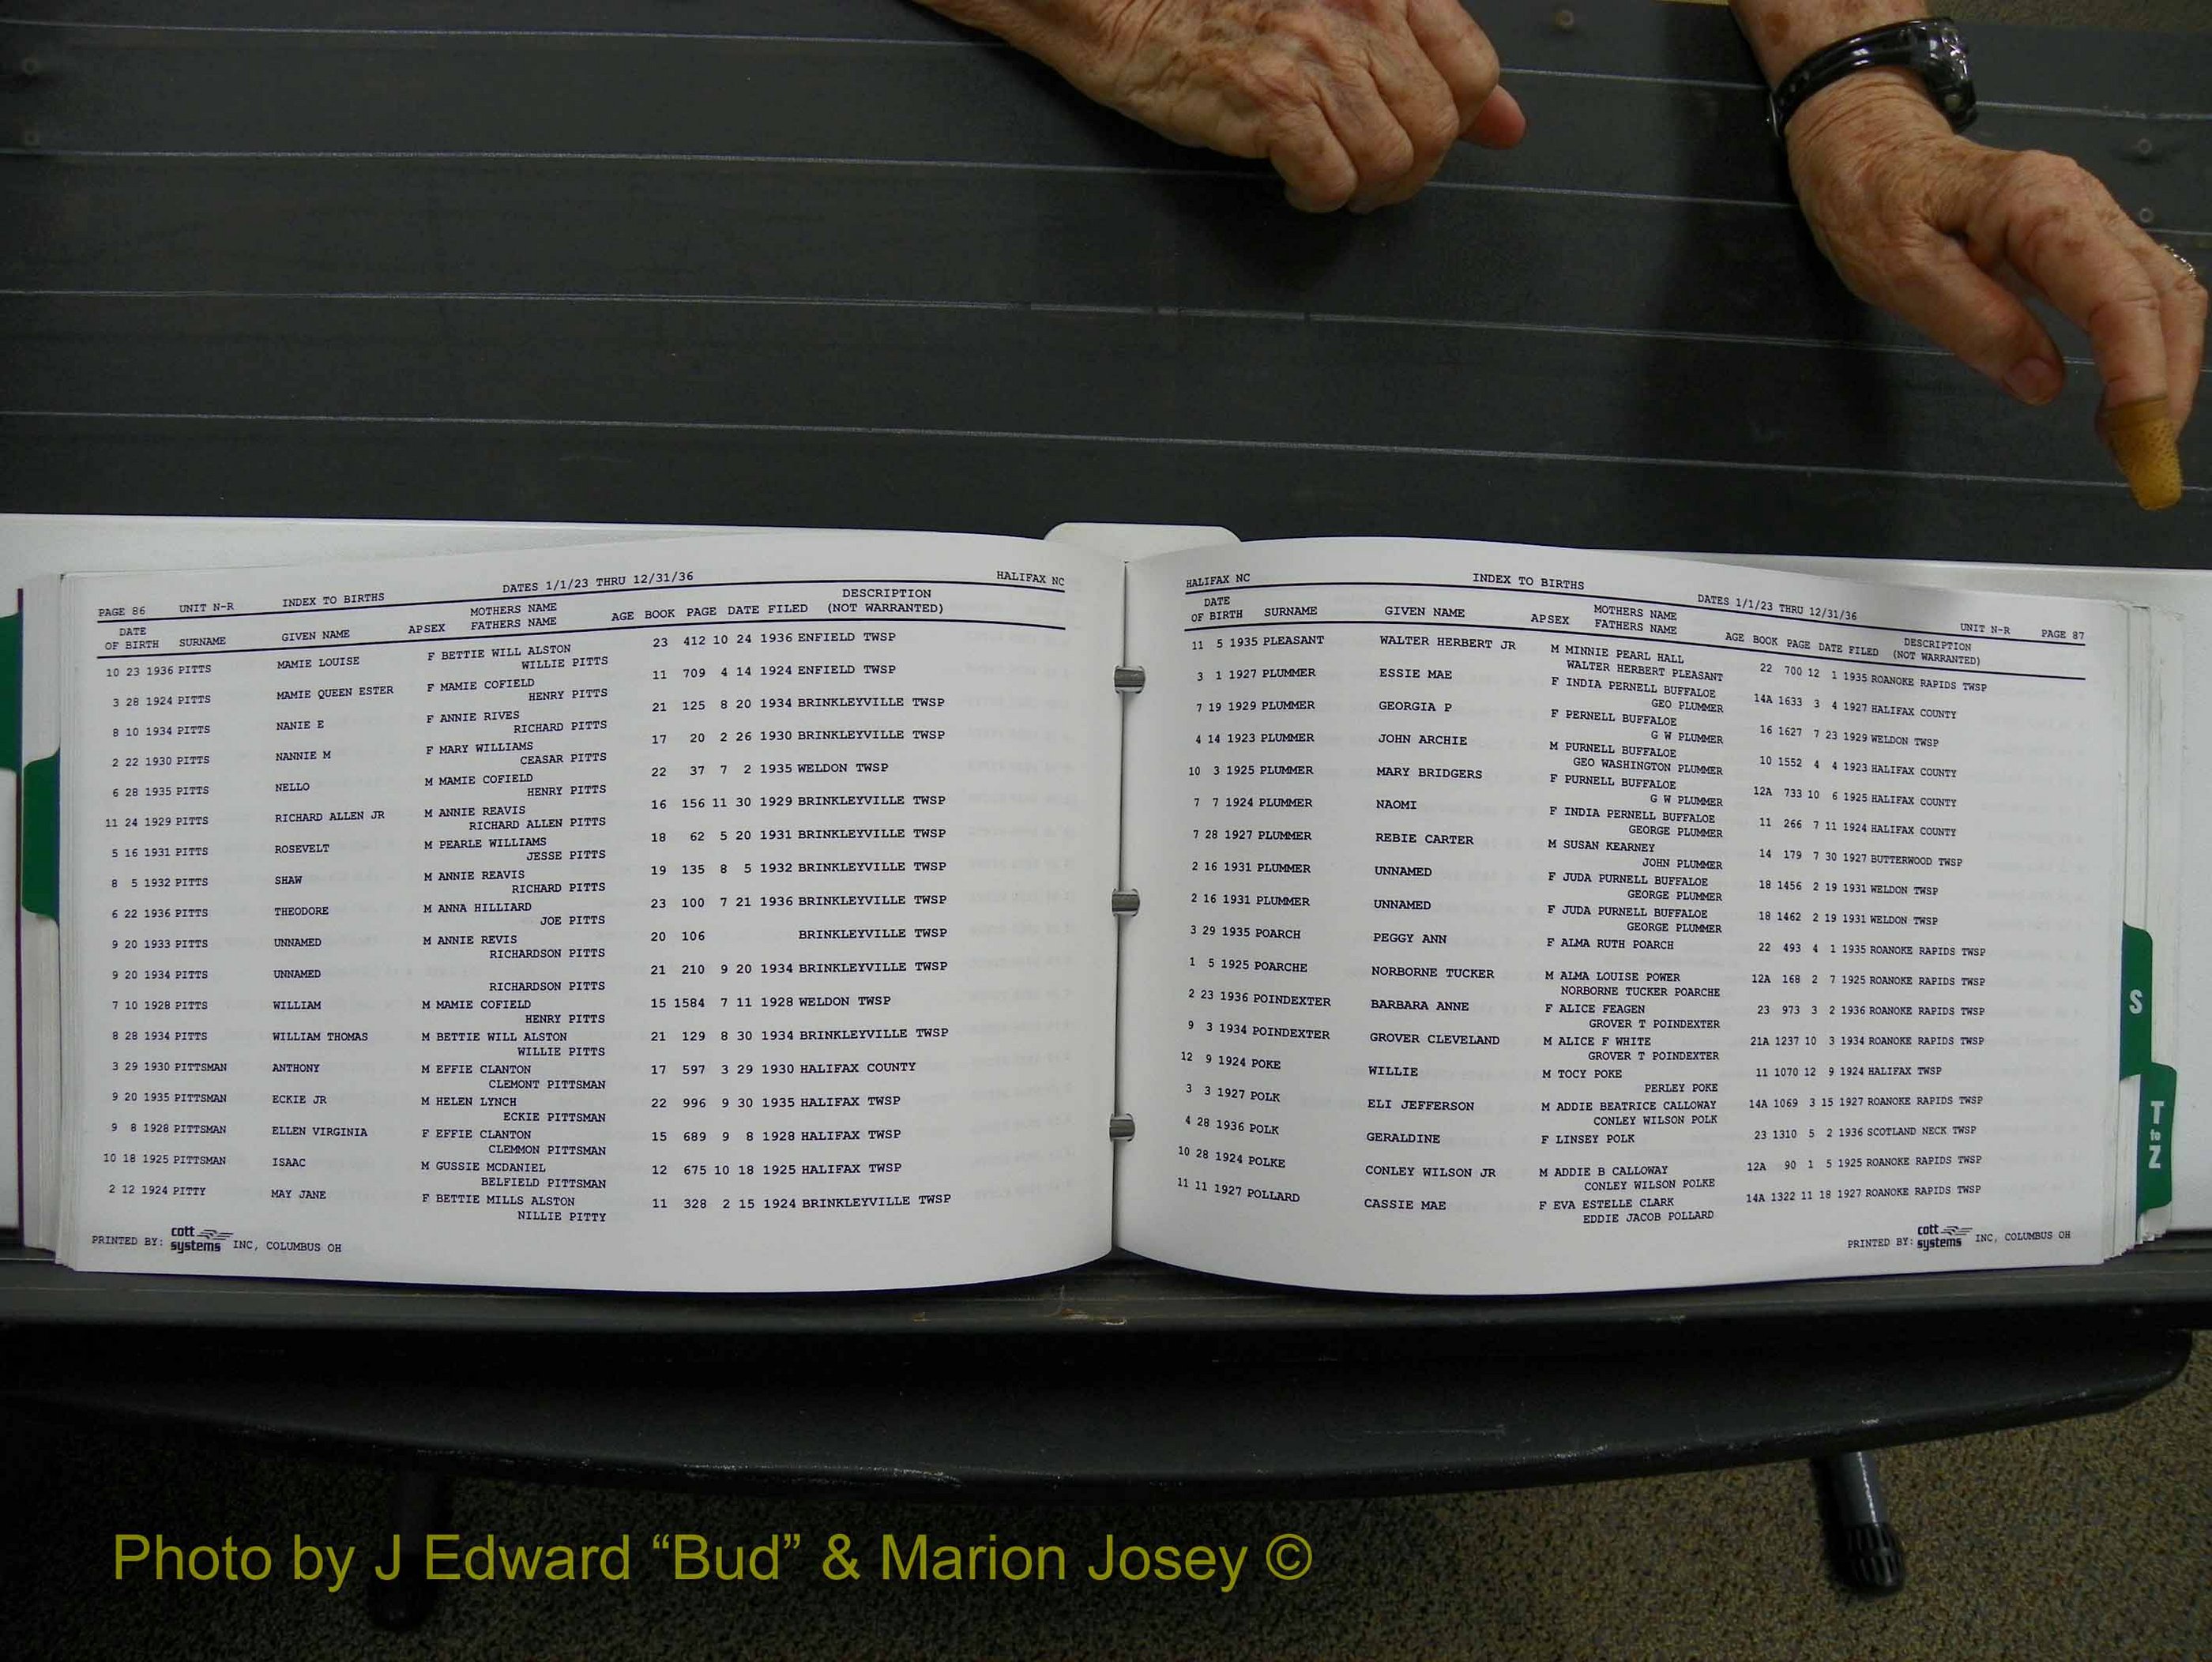 PAGE 86 UNIT N-R INDEX TO BIRTHS DATES 1/1/23 THRU 12/31/36 HALIFAX NC
DATE OF BIRTH SURNAME GIVEN NAME APSEX MOTHERS NAME FATHERS NAME AGE BOOK PAGE DATE FILED DESCRIPTION (NOT WARRANTED)
10 23 1936 PITTS MAMIE LOUISE F BETTIE WILL ALSTON 23 412 10 24 1936 ENFIELD TWSP
WILLIE PITTS
3 28 1924 PITTS MAMIE QUEEN ESTER F MAMIE COFIELD 11 709 4 14 1924 ENFIELD TWSP
HENRY PITTS
8 10 1934 PITTS NANIE E F ANNIE RIVES 21 125 8 20 1934 BRINKLEYVILLE TWSP
RICHARD PITTS
2 22 1930 PITTS NANNIE M F MARY WILLIAMS 17 20 2 26 1930 BRINKLEYVILLE TWSP
CEASAR PITTS
6 28 1935 PITTS NELLO M MAMIE COFIELD 22 37 7 2 1935 WELDON TWSP
HENRY PITTS
11 24 1929 PITTS RICHARD ALLEN JR M ANNIE REAVIS 16 156 11 30 1929 BRINKLEYVILLE TWSP
RICHARD ALLEN PITTS
5 16 1931 PITTS ROSEVELT M PEARLE WILLIAMS 18 62 5 20 1931 BRINKLEYVILLE TWSP
JESSE PITTS
8 5 1932 PITTS SHAW M ANNIE REAVIS 19 135 8 5 1932 BRINKLEYVILLE TWSP
RICHARD PITTS
6 22 1936 PITTS THEODORE M ANNA HILLIARD 23 100 7 21 1936 BRINKLEYVILLE TWSP
JOE PITTS
9 20 1933 PITTS UNNAMED M ANNIE REVIS 20 106 BRINKLEYVILLE TWSP
RICHARDSON PITTS
9 20 1934 PITTS UNNAMED 21 210 9 20 1934 BRINKLEYVILLE TWSP
RICHARDSON PITTS
7 10 1928 PITTS WILLIAM M MAMIE COFIELD 15 1584 7 11 1928 WELDON TWSP
HENRY PITTS
8 28 1934 PITTS WILLIAM THOMAS M BETTIE WILL ALSTON 21 129 8 30 1934 BRINKLEYVILLE TWSP
WILLIE PITTS
3 29 1930 PITTSMAN ANTHONY M EFFIE CLANTON 17 597 3 29 1930 HALIFAX COUNTY
CLEMONT PITTSMAN
9 20 1935 PITTSMAN ECKIE JR M HELEN LYNCH 22 996 9 30 1935 HALIFAX TWSP
ECKIE PITTSMAN
9 8 1928 PITTSMAN ELLEN VIRGINIA F EFFIE CLANTON 15 689 9 8 1928 HALIFAX TWSP
CLEMMON PITTSMAN
10 18 1925 PITTSMAN ISAAC M GUSSIE MCDANIEL 12 675 10 18 1925 HALIFAX TWSP
BELFIELD PITTSMAN
2 12 1924 PITTY MAY JANE F BETTIE MILLS ALSTON 11 328 2 15 1924 BRINKLEYVILLE TWSP
NILLIE PITTY
PRINTED BY: cott systems INC, COLUMBUS OH
HALIFAX NC INDEX TO BIRTHS DATES 1/1/23 THRU 12/31/36 UNIT N-R PAGE 87
DATE OF BIRTH SURNAME GIVEN NAME APSEX MOTHERS NAME FATHERS NAME AGE BOOK PAGE DATE FILED DESCRIPTION (NOT WARRANTED)
11 5 1935 PLEASANT WALTER HERBERT JR M MINNIE PEARL HALL 22 700 12 1 1935 ROANOKE RAPIDS TWSP
WALTER HERBERT PLEASANT
3 1 1927 PLUMMER ESSIE MAE F INDIA PERNELL BUFFALOE 14A 1633 3 4 1927 HALIFAX COUNTY
GEO PLUMMER
7 19 1929 PLUMMER GEORGIA P F PERNELL BUFFALOE 16 1627 7 23 1929 WELDON TWSP
G W PLUMMER
4 14 1923 PLUMMER JOHN ARCHIE M PURNELL BUFFALOE 10 1552 4 4 1923 HALIFAX COUNTY
GEO WASHINGTON PLUMMER
10 3 1925 PLUMMER MARY BRIDGERS F PURNELL BUFFALOE 12A 733 10 6 1925 HALIFAX COUNTY
G W PLUMMER
7 7 1924 PLUMMER NAOMI F INDIA PERNELL BUFFALOE 11 266 7 11 1924 HALIFAX COUNTY
GEORGE PLUMMER
7 28 1927 PLUMMER REBIE CARTER M SUSAN KEARNEY 14 179 7 30 1927 BUTTERWOOD TWSP
JOHN PLUMMER
2 16 1931 PLUMMER UNNAMED F JUDA PURNELL BUFFALOE 18 1456 2 19 1931 WELDON TWSP
GEORGE PLUMMER
2 16 1931 PLUMMER UNNAMED F JUDA PURNELL BUFFALOE 18 1462 2 19 1931 WELDON TWSP
GEORGE PLUMMER
3 29 1935 POARCH PEGGY ANN F ALMA RUTH POARCH 22 493 4 1 1935 ROANOKE RAPIDS TWSP
1 5 1925 POARCHE NORBORNE TUCKER M ALMA LOUISE POWER 12A 168 2 7 1925 ROANOKE RAPIDS TWSP
NORBORNE TUCKER POARCHE
2 23 1936 POINDEXTER BARBARA ANNE F ALICE FEAGEN 23 973 3 2 1936 ROANOKE RAPIDS TWSP
GROVER T POINDEXTER
9 3 1934 POINDEXTER GROVER CLEVELAND M ALICE F WHITE 21A 1237 10 3 1934 ROANOKE RAPIDS TWSP
GROVER T POINDEXTER
12 9 1924 POKE WILLIE M TOCY POKE 11 1070 12 9 1924 HALIFAX TWSP
PERLEY POKE
3 3 1927 POLK ELI JEFFERSON M ADDIE BEATRICE CALLOWAY 14A 1069 3 15 1927 ROANOKE RAPIDS TWSP
CONLEY WILSON POLK
4 28 1936 POLK GERALDINE F LINSEY POLK 23 1310 5 2 1936 SCOTLAND NECK TWSP
10 28 1924 POLKE CONLEY WILSON JR M ADDIE B CALLOWAY 12A 90 1 5 1925 ROANOKE RAPIDS TWSP
CONLEY WILSON POLKE
11 11 1927 POLLARD CASSIE MAE F EVA ESTELLE CLARK 14A 1322 11 18 1927 ROANOKE RAPIDS TWSP
EDDIE JACOB POLLARD
PRINTED BY: cott systems INC, COLUMBUS OH
S
T to Z
Photo by J Edward “Bud” & Marion Josey ©